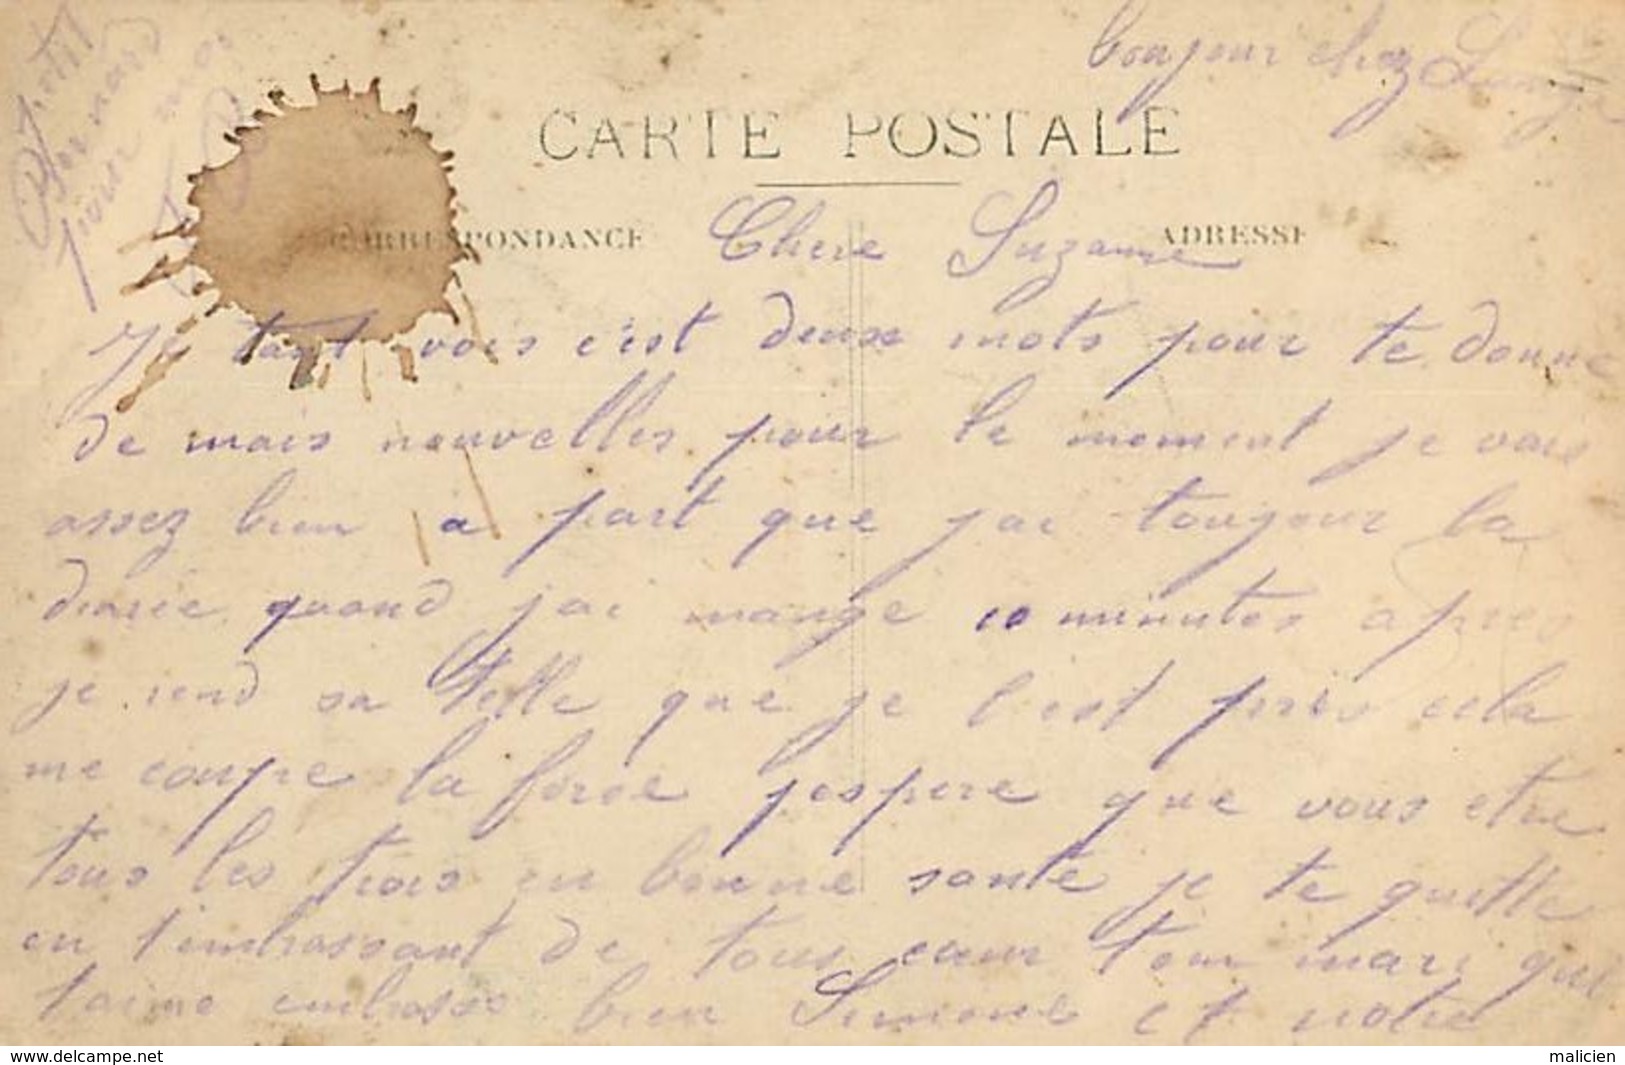 bonjour chez
petit
Bernard
pour moi
CARTE POSTALE
CORRESPONDANCE
ADRESSE
Chere Suzanne
Je vois c'est deux mots pour te donne
de mais nouvelles pour le moment je vais
assez bien a part que jai toujour la
quand jai mange 10 minutes apres
je rend sa telle que je l'est pris cela
me coupe la force jespere que vous etre
tous les trois en bonne santé je te quitte
en t'embrassant de tous cœur ton mari qui
t'aime embrasse bien Simone et notre
www.delcampe.net
malicien